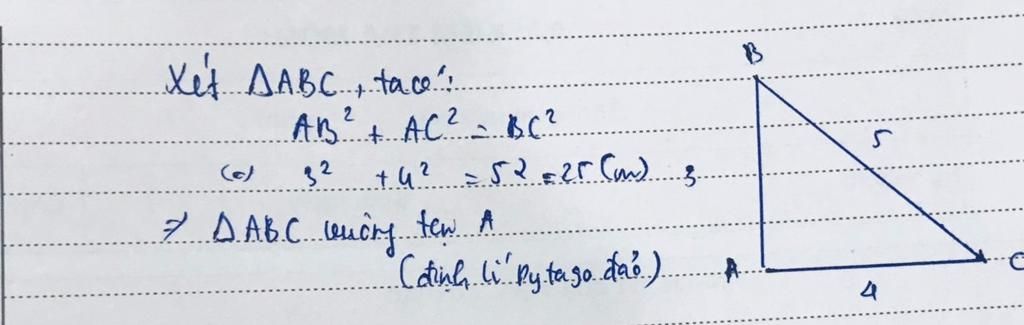 Xét ΔABC, ta có:
AB² + AC² = BC²
(=) 3² + 4² = 5² = 25 (m)
=> ΔABC vuông tại A
(định lí Pytago đảo)
B
5
3
A
4
C